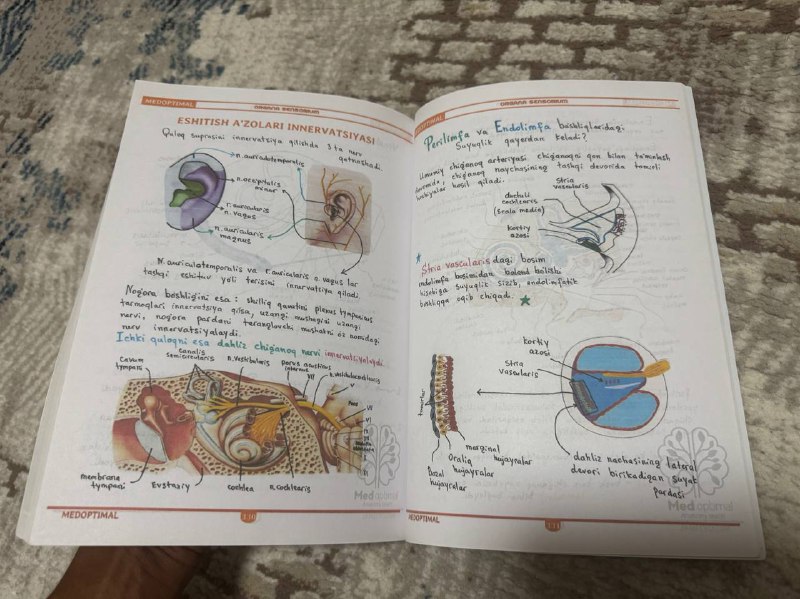 MEDOPTIMAL
ORGANA SENSORIUM
ESHITISH A'ZOLARI INNERVATSIYASI
Quloq suprasini innervatsiya qilishda 3 ta nerv
qatnashadi.
n. auriculotemporalis
n. occipitalis
minor
r. auricularis
n. vagus
n. auricularis
magnus
N. auriculotemporalis va r. auricularis n. vagus lar
tashqi eshituv yo'li terisini innervatsiya qiladi
Nog'ora bo'shlig'ini esa: shilliq qavatini plexus tympanicus
tarmoqlari innervatsiya qilsa, uzangi mushagini uzangi
nervi, nog'ora pardani taranglovchi mushakni o'z nomidagi
nerv innervatsiyalaydi.
Ichki quloqni esa dahliz chig'anoq nervi innervatsiyalaydi.
Cavum
tympani
canalis
semicircularis
n. vestibularis
porus acusticus
internus
VII
n. vestibulocochlearis
V
Pons
VI
VII
IX
XI
membrane
tympani
Evstaxiy
cochlea
n. cochlearis
Med optimal
MEDOPTIMAL
110
ORGANA SENSORIUM
Perilimfa va Endolimfa bo'shliqlaridagi
Suyuqlik qayerdan keladi?
Umumiy chig'anoq arteriyasi chig'anoqni qon bilan ta'minlash
davomida, chig'anoq naychasining tashqi devorida tomirli
hoshiyalar hosil qiladi.
Stria
vascularis
ductuli
cochlearis
(scala media)
kortiy
azosi
Stria vascularis dagi bosim
endolimfa bosimidan baland bo'lishi
hisobiga suyuqlik sizib, endolimfatik
bo'shliqqa oqib chiqadi.
kortiy
azosi
stria
vascularis
tomirlar
marginal
hujayralar
Oraliq
hujayralar
Bazal
hujayralar
dahliz nachasining lateral
devori birikadigan suyak
pardasi
Med optimal
MEDOPTIMAL
111